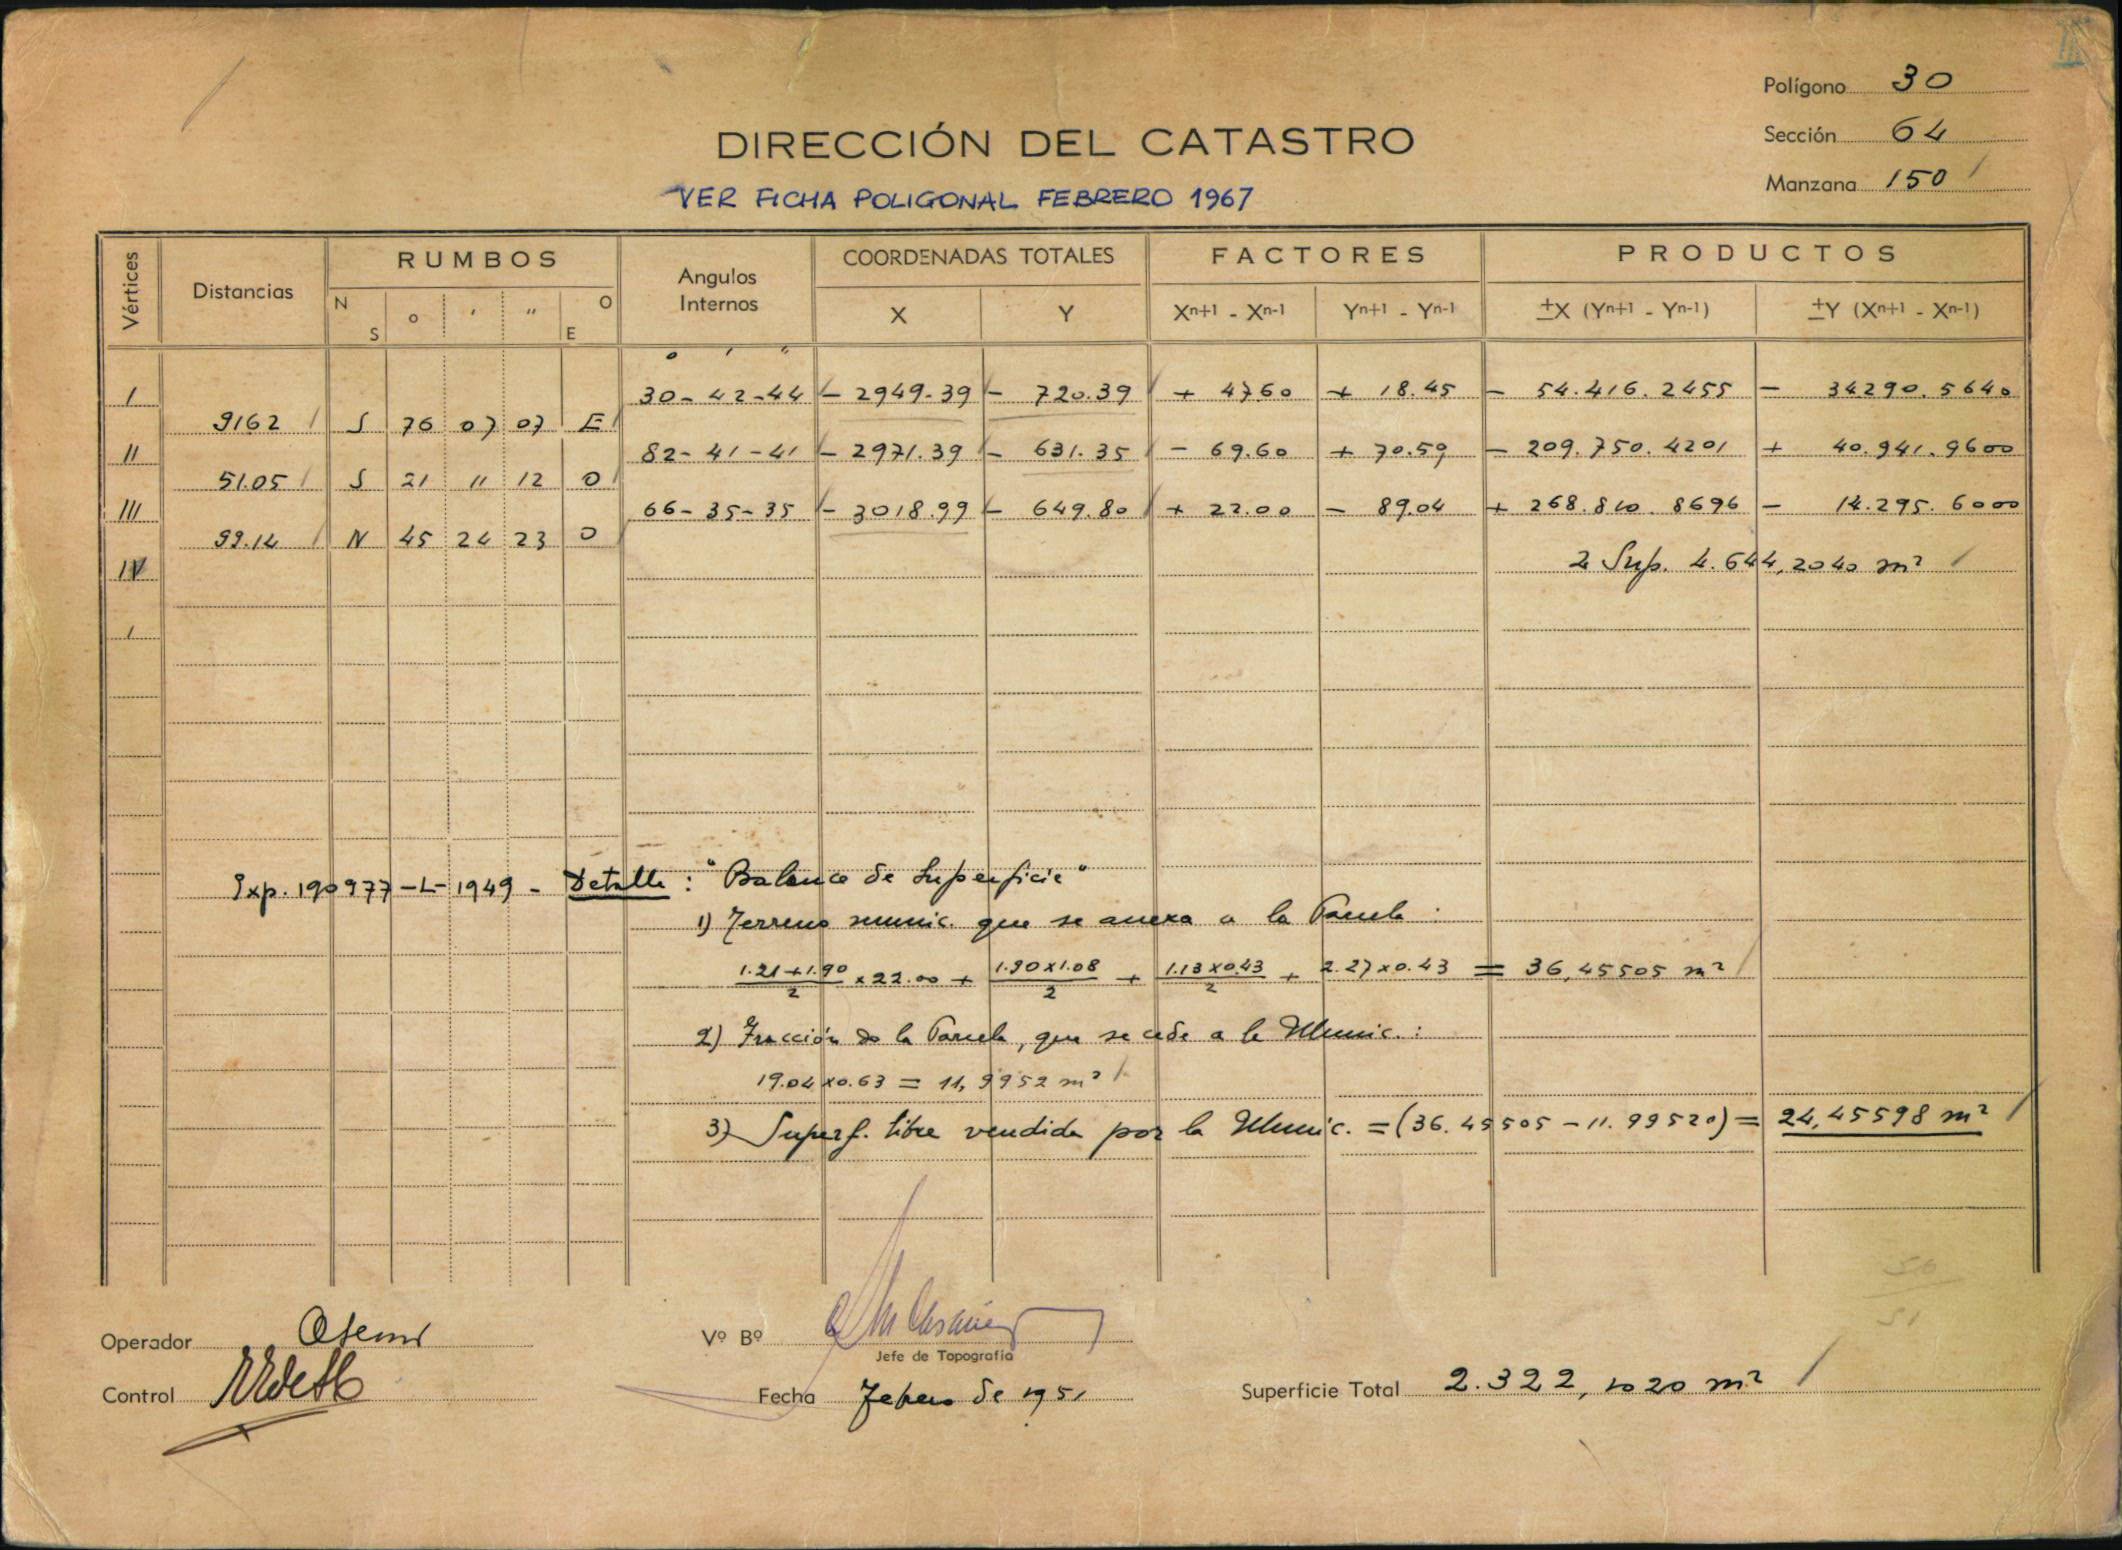 Polígono 30
Sección 64
Manzana 150
DIRECCIÓN DEL CATASTRO
VER FICHA POLIGONAL FEBRERO 1967
Vértices Distancias RUMBOS Angulos Internos COORDENADAS TOTALES FACTORES PRODUCTOS
N S o ' " O E X Y Xn+1 - Xn-1 Yn+1 - Yn-1 ±X (Yn+1 - Yn-1) ±Y (Xn+1 - Xn-1)
o ' "
I 30-42-44 - 2949.39 - 720.39 + 47.60 + 18.45 - 54.416.2455 - 34290.5640
9162 S 76 07 07 E
II 82-41-41 - 2971.39 - 631.35 - 69.60 + 70.59 - 209.750.4201 + 40.941.9600
51.05 S 21 11 12 O
III 66-35-35 - 3018.99 - 649.80 + 22.00 - 89.04 + 268.810.8696 - 14.295.6000
99.14 N 45 24 23 O
IV 2 Sup. 4.644,2040 m²
I
Exp. 190977-L-1949 - Detalle: "Balance de Superficie"
1) Terreno munic. que se anexa a la Parcela:
1.21+1.90/2 x 22.00 + 1.90x1.08/2 + 1.13x0.43/2 + 2.27x0.43 = 36,45505 m²
2) Fracción de la Parcela, que se cede a la Munic.:
19.04x0.63 = 11,9952 m²
3) Superf. libre vendida por la Munic. = (36.45505 - 11.99520) = 24,45598 m²
Operador
Vº Bº
Jefe de Topografía
Control
Fecha Febrero de 1951
Superficie Total 2.322,1020 m²